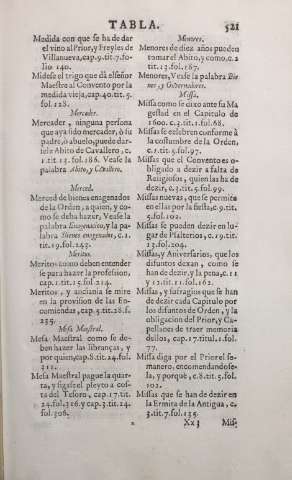 TABLA.
521
Medida con que se ha de dar
el vino al Prior, y Freyles de
Villanueva, cap.9.tit.7.fo-
lio 140.
Midese el trigo que dà el señor
Maestre al Convento por la
medida vieja, cap.40.tit.5.
fol.128.
Mercader.
Mercader, ninguna persona
que aya sido mercader, ò su
padre, ò abuelo, puede dar-
sele Abito de Cavallero, c.
1.tit.13.fol.186. Vease la
palabra Abito, y Cavallero.
Merced.
Merced de bienes enagenados
de la Orden, a quien, y co-
mo se deba hazer, Vease la
palabra Enagenacion, y la pa-
labra Bienes enagenados, c.1.
tit.19.fol.243.
Meritos.
Meritos como deben entender
se para hazer la profession,
cap.11.tit.15.fol.214.
Meritos, y anciania se mire
en la provision de las En-
comiendas, cap.5.tit.28.f.
255.
Mesa Maestral.
Mesa Maestral como se de-
ben hazer las libranças, y
por quien, cap.8.tit.24.fol.
311.
Mesa Maestral pague la quar-
ta, y sigase el pleyto a cos-
ta del Tesoro, cap.17.tit.
24.fol.316.y cap.3.tit.24.
fol.306.
Menores.
Menores de diez años pueden
tomar el Abito, y como, c.2
tit.13.fol.187.
Menores, Vease la palabra Bie-
nes, y Governadores.
Missa.
Missa como se dixo ante su Ma
gestad en el Capitulo de
1600. c.2.tit.1.fol.68.
Missas se celebren conforme à
la costumbre de la Orden,
c.1.tit.5.fol.97.
Missas que el Convento es o-
bligado a dezir a falta de
Religiosos, quien las ha de
dezir, c.3.tit.5.fol.99.
Missas nuevas, que se permita
en ellas por la fiesta, c.9.tit.
5.fol.102.
Missas se pueden dezir en lu-
gar de Psalterios, c.19.tit.
13.fol.204.
Missas, y Aniversarios, que los
difuntos dexan, como se
han de dezir, y la pena, c.11
y 12.tit.11.fol.162.
Missas, y sufragios que se han
de dezir cada Capitulo por
los difuntos de Orden, y la
obligacion del Prior, y Ca-
pellanes de traer memoria
dellos, cap.17.titul.1.fol.
77.
Missa diga por el Prior el se-
manero, encomendandose-
la, y porquè, c.8.tit.5.fol.
102.
Missas que se han de dezir en
la Ermita de la Antigua, c.
3.tit.7.fol.135.
Xx3
Mis-